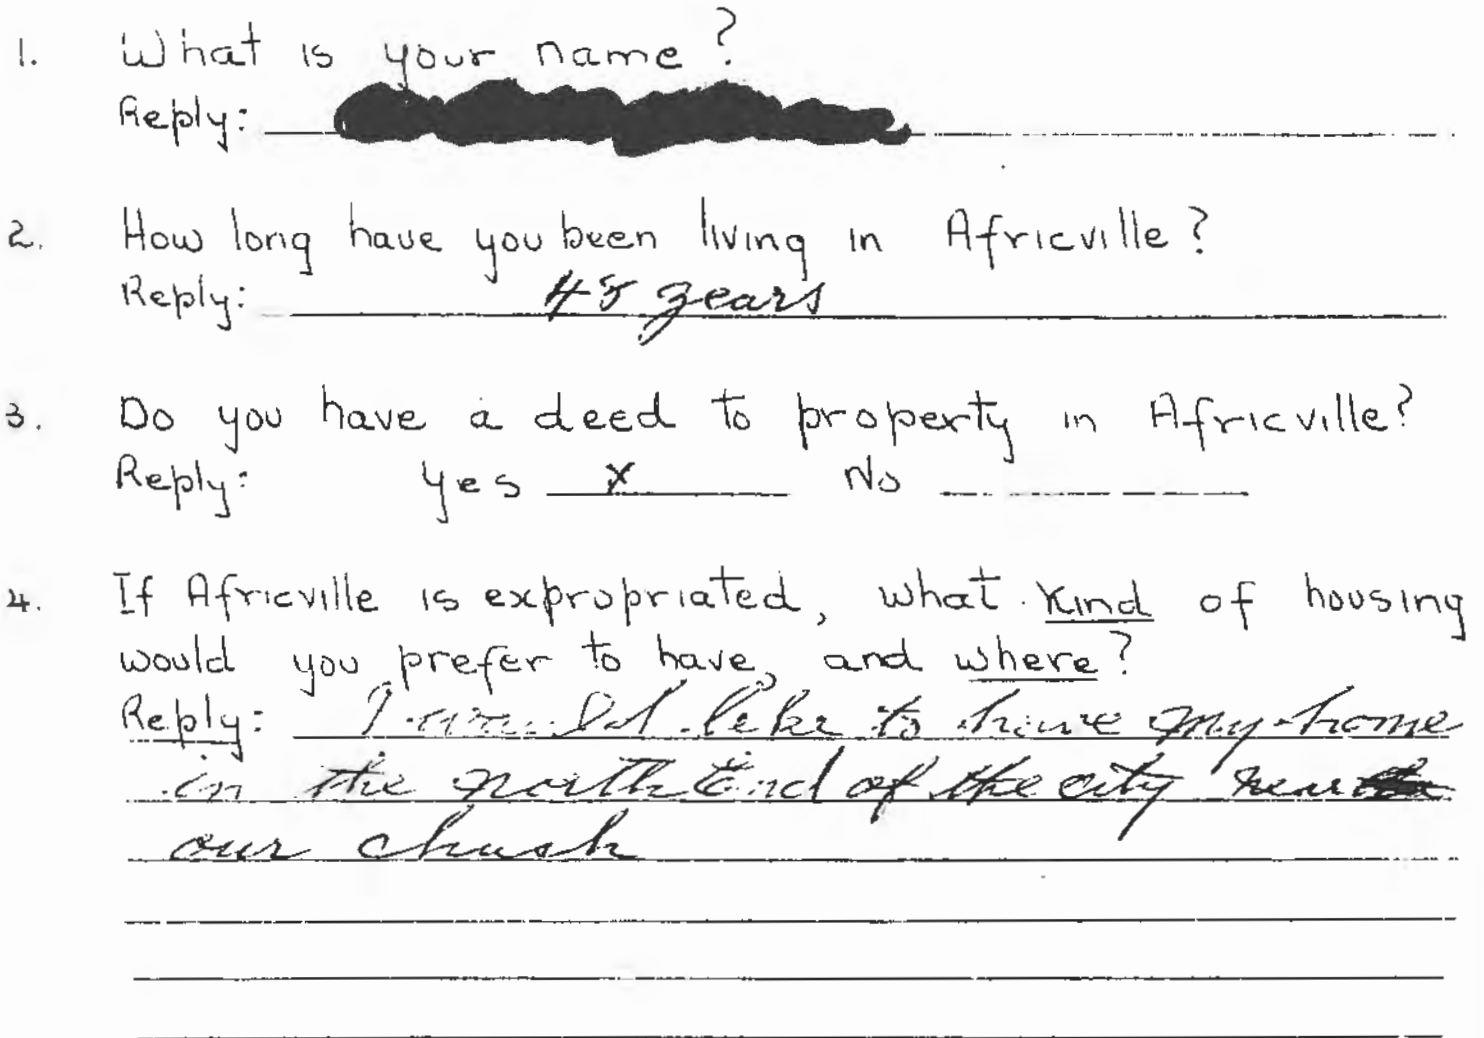 1. What is your name?
Reply:
2. How long have you been living in Africville?
Reply: 48 years
3. Do you have a deed to property in Africville?
Reply: Yes x No
4. If Africville is expropriated, what kind of housing
would you prefer to have, and where?
Reply: I would like to have my home
in the north End of the city near
our chush